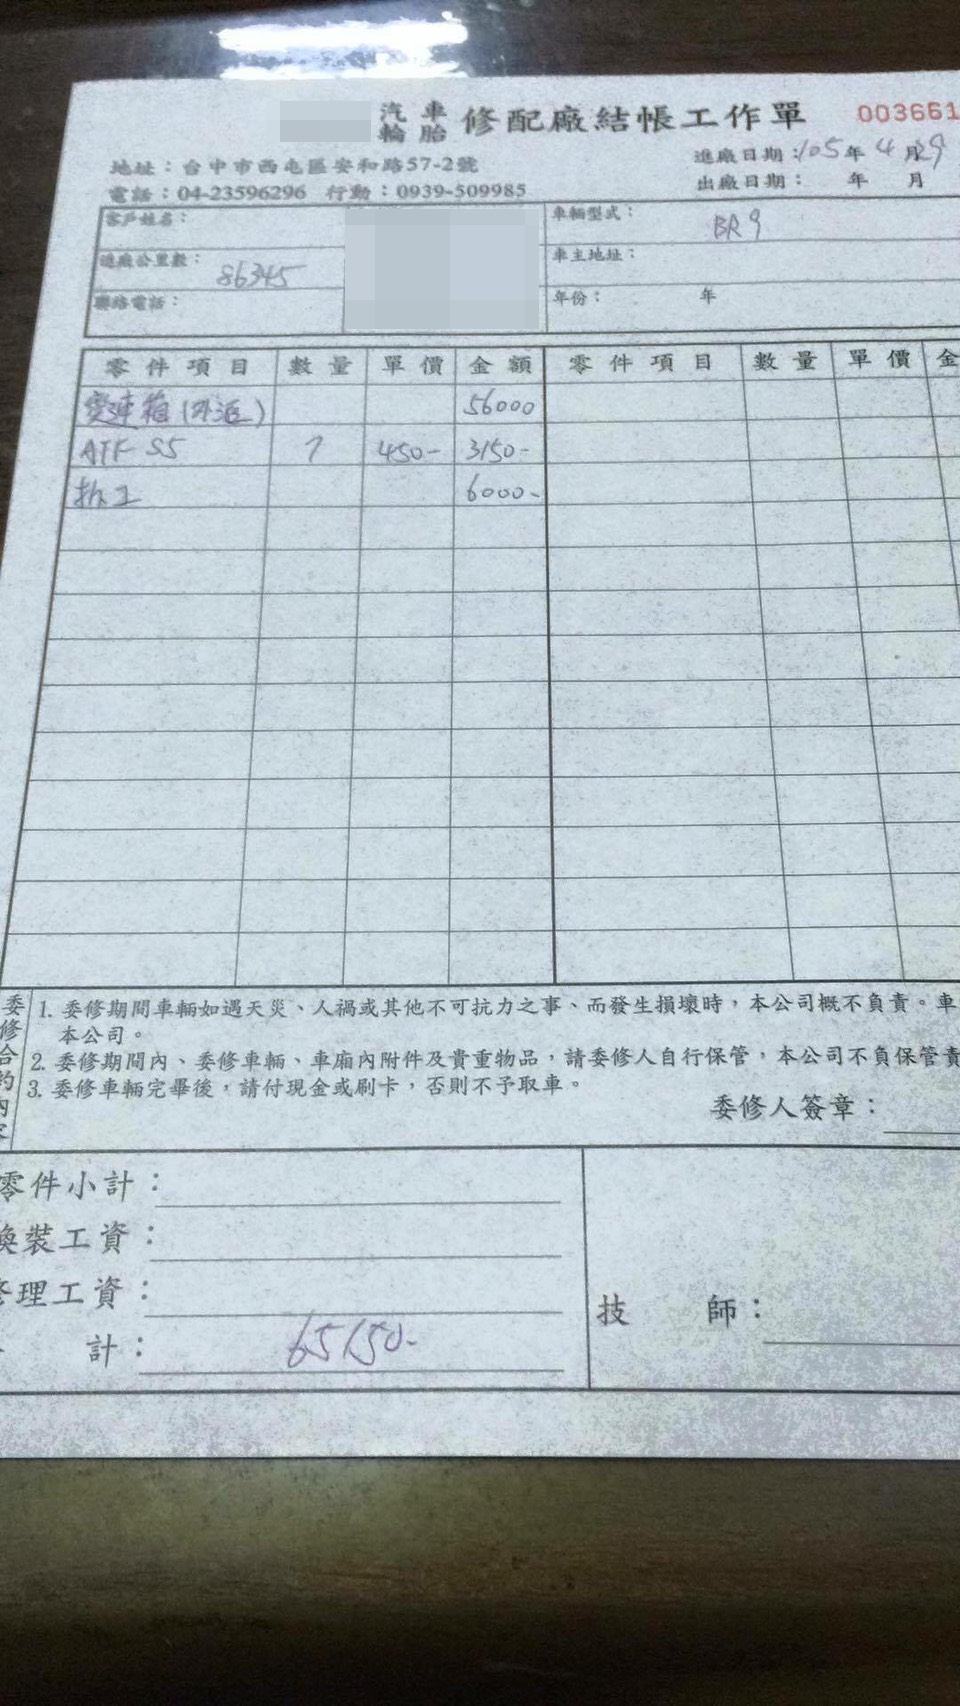 汽車輪胎 修配廠結帳工作單 003661
地址：台中市西屯區安和路57-2號
電話：04-23596296 行動：0939-509985
進廠日期：105年 4 月29
出廠日期： 年 月
客戶姓名：
車輛型式： BR9
進廠公里數： 86345
車主地址：
聯絡電話：
年份： 年
零件項目 數量 單價 金額 零件項目 數量 單價 金
變速箱(外派) 56000
ATF S5 7 450- 3150-
拆工 6000-
委修合約內容
1. 委修期間車輛如遇天災、人禍或其他不可抗力之事、而發生損壞時，本公司概不負責。車
本公司。
2. 委修期間內、委修車輛、車廂內附件及貴重物品，請委修人自行保管，本公司不負保管責
3. 委修車輛完畢後，請付現金或刷卡，否則不予取車。
委修人簽章：
零件小計：
換裝工資：
修理工資：
計： 65150-
技 師：